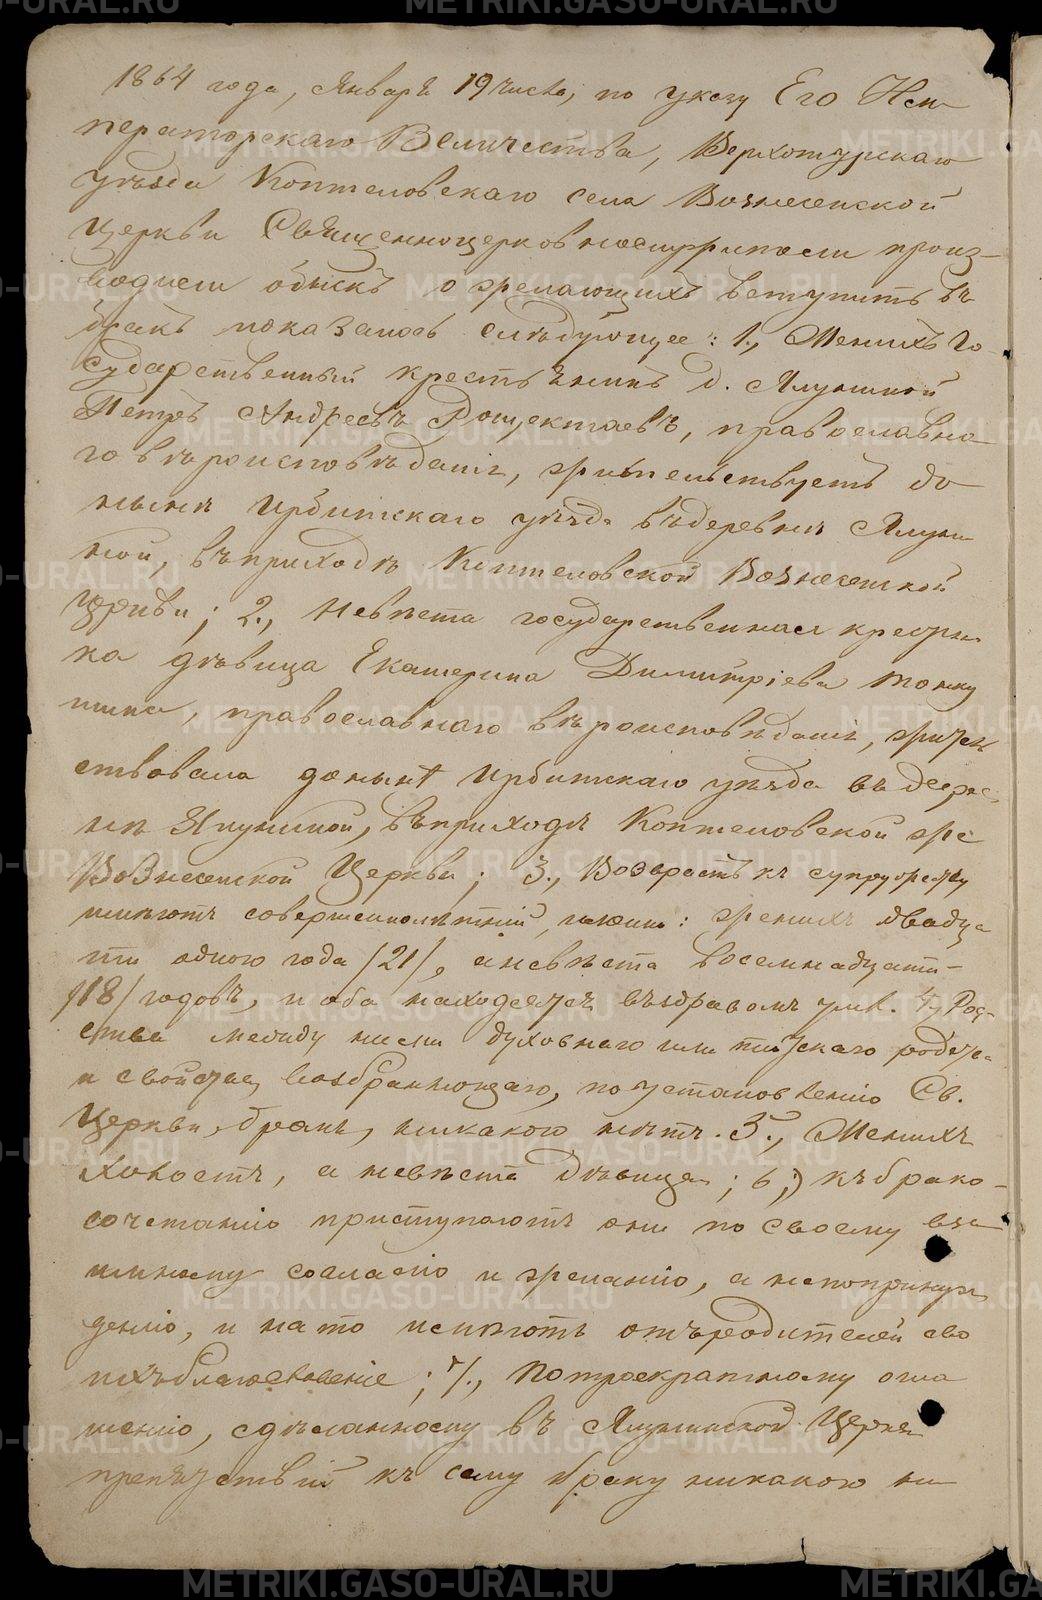 1864 года, Января 19 числа, по указу Его Им-
ператорскаго Величества, Верхотурскаго
уѣзда Коптеловскаго села Вознесенской
Церкви Священноцерковнослужители произ-
водили обыскъ о желающихъ вступить въ
бракъ показалось слѣдующее: 1., Женихъ Го-
сударственный крестьянинъ д. Ялуниной
Петръ Андреевъ, православна-
го вѣроисповѣданія, жительствуетъ до
нынѣ Ирбитскаго уѣзда въ деревнѣ Ялуни
ной, въ приходѣ Коптеловской Вознесенской
Церкви; 2., Невѣста государственная крестьян
ка дѣвица Екатерина Димитріева
православнаго вѣроисповѣданія, житель
ствовала донынѣ Ирбитскаго уѣзда въ дерев
нѣ Ялуниной, въ приходѣ Коптеловской же
Вознесенской Церкви; 3., Возрастъ къ супружеству
имѣютъ совершеннолѣтній, именно: женихъ двадца
ти одного года /21/, а невѣста восемнадцати
/18/ годовъ, и оба находятся въ здравомъ умѣ. 4., Род-
ства между ними духовнаго или плотскаго родства
и свойства, возбраняющаго, по установленію Св.
Церкви, бракъ, никакого нѣтъ. 5., Женихъ
Холостъ, а невѣста дѣвица; 6., къ брако-
сочетанію приступаютъ они по своему вза
имному согласію и желанію, а не по принуж
денію, и на то имѣютъ отъ родителей сво
ихъ благословеніе; 7., По троекратному огла
шенію, сдѣланному въ Церкви
препятствій къ сему браку никакого не
METRIKI.GASO-URAL.RU